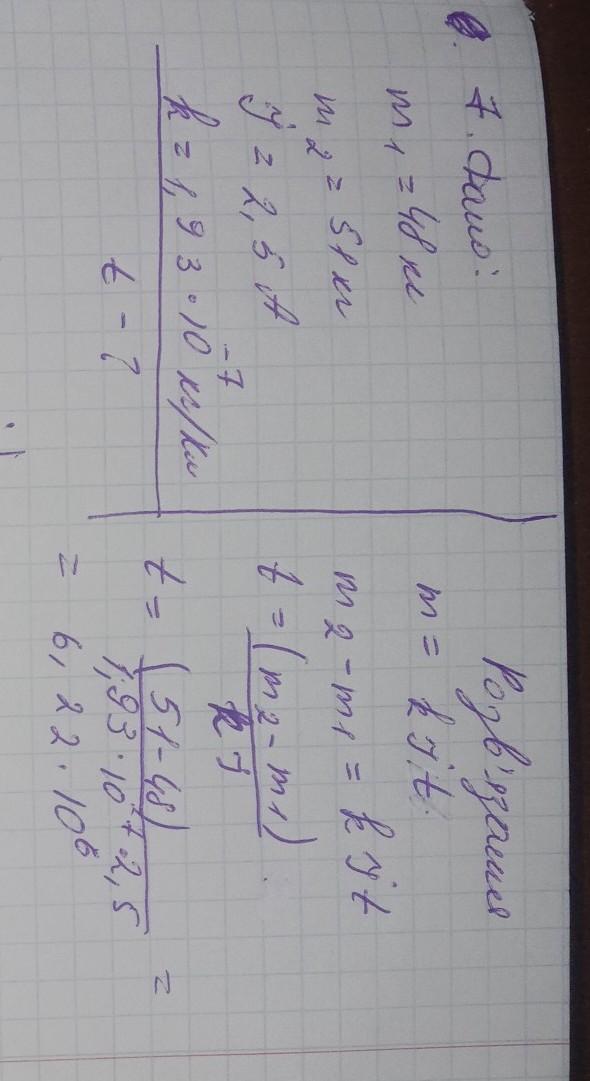 7. Дано:
m₁ = 48 кг
m₂ = 51 кг
J = 2,5 A
k = 1,93 · 10⁻⁷ кг/Кл
t - ?
Розв'язання
m = k J t
m₂ - m₁ = k J t
t = (m₂ - m₁) / k J
t = (51-48) / 1,93 · 10⁻⁷ · 2,5 =
= 6,22 · 10⁶